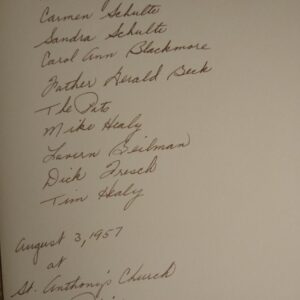 Carmen Schulte
Sandra Schulte
Carol Ann Blackmore
Father Gerald Beck
The Pats
Mike Healy
Lavern Beilman
Dick Fresch
Tim Healy
August 3, 1957
at
St. Anthony's Church